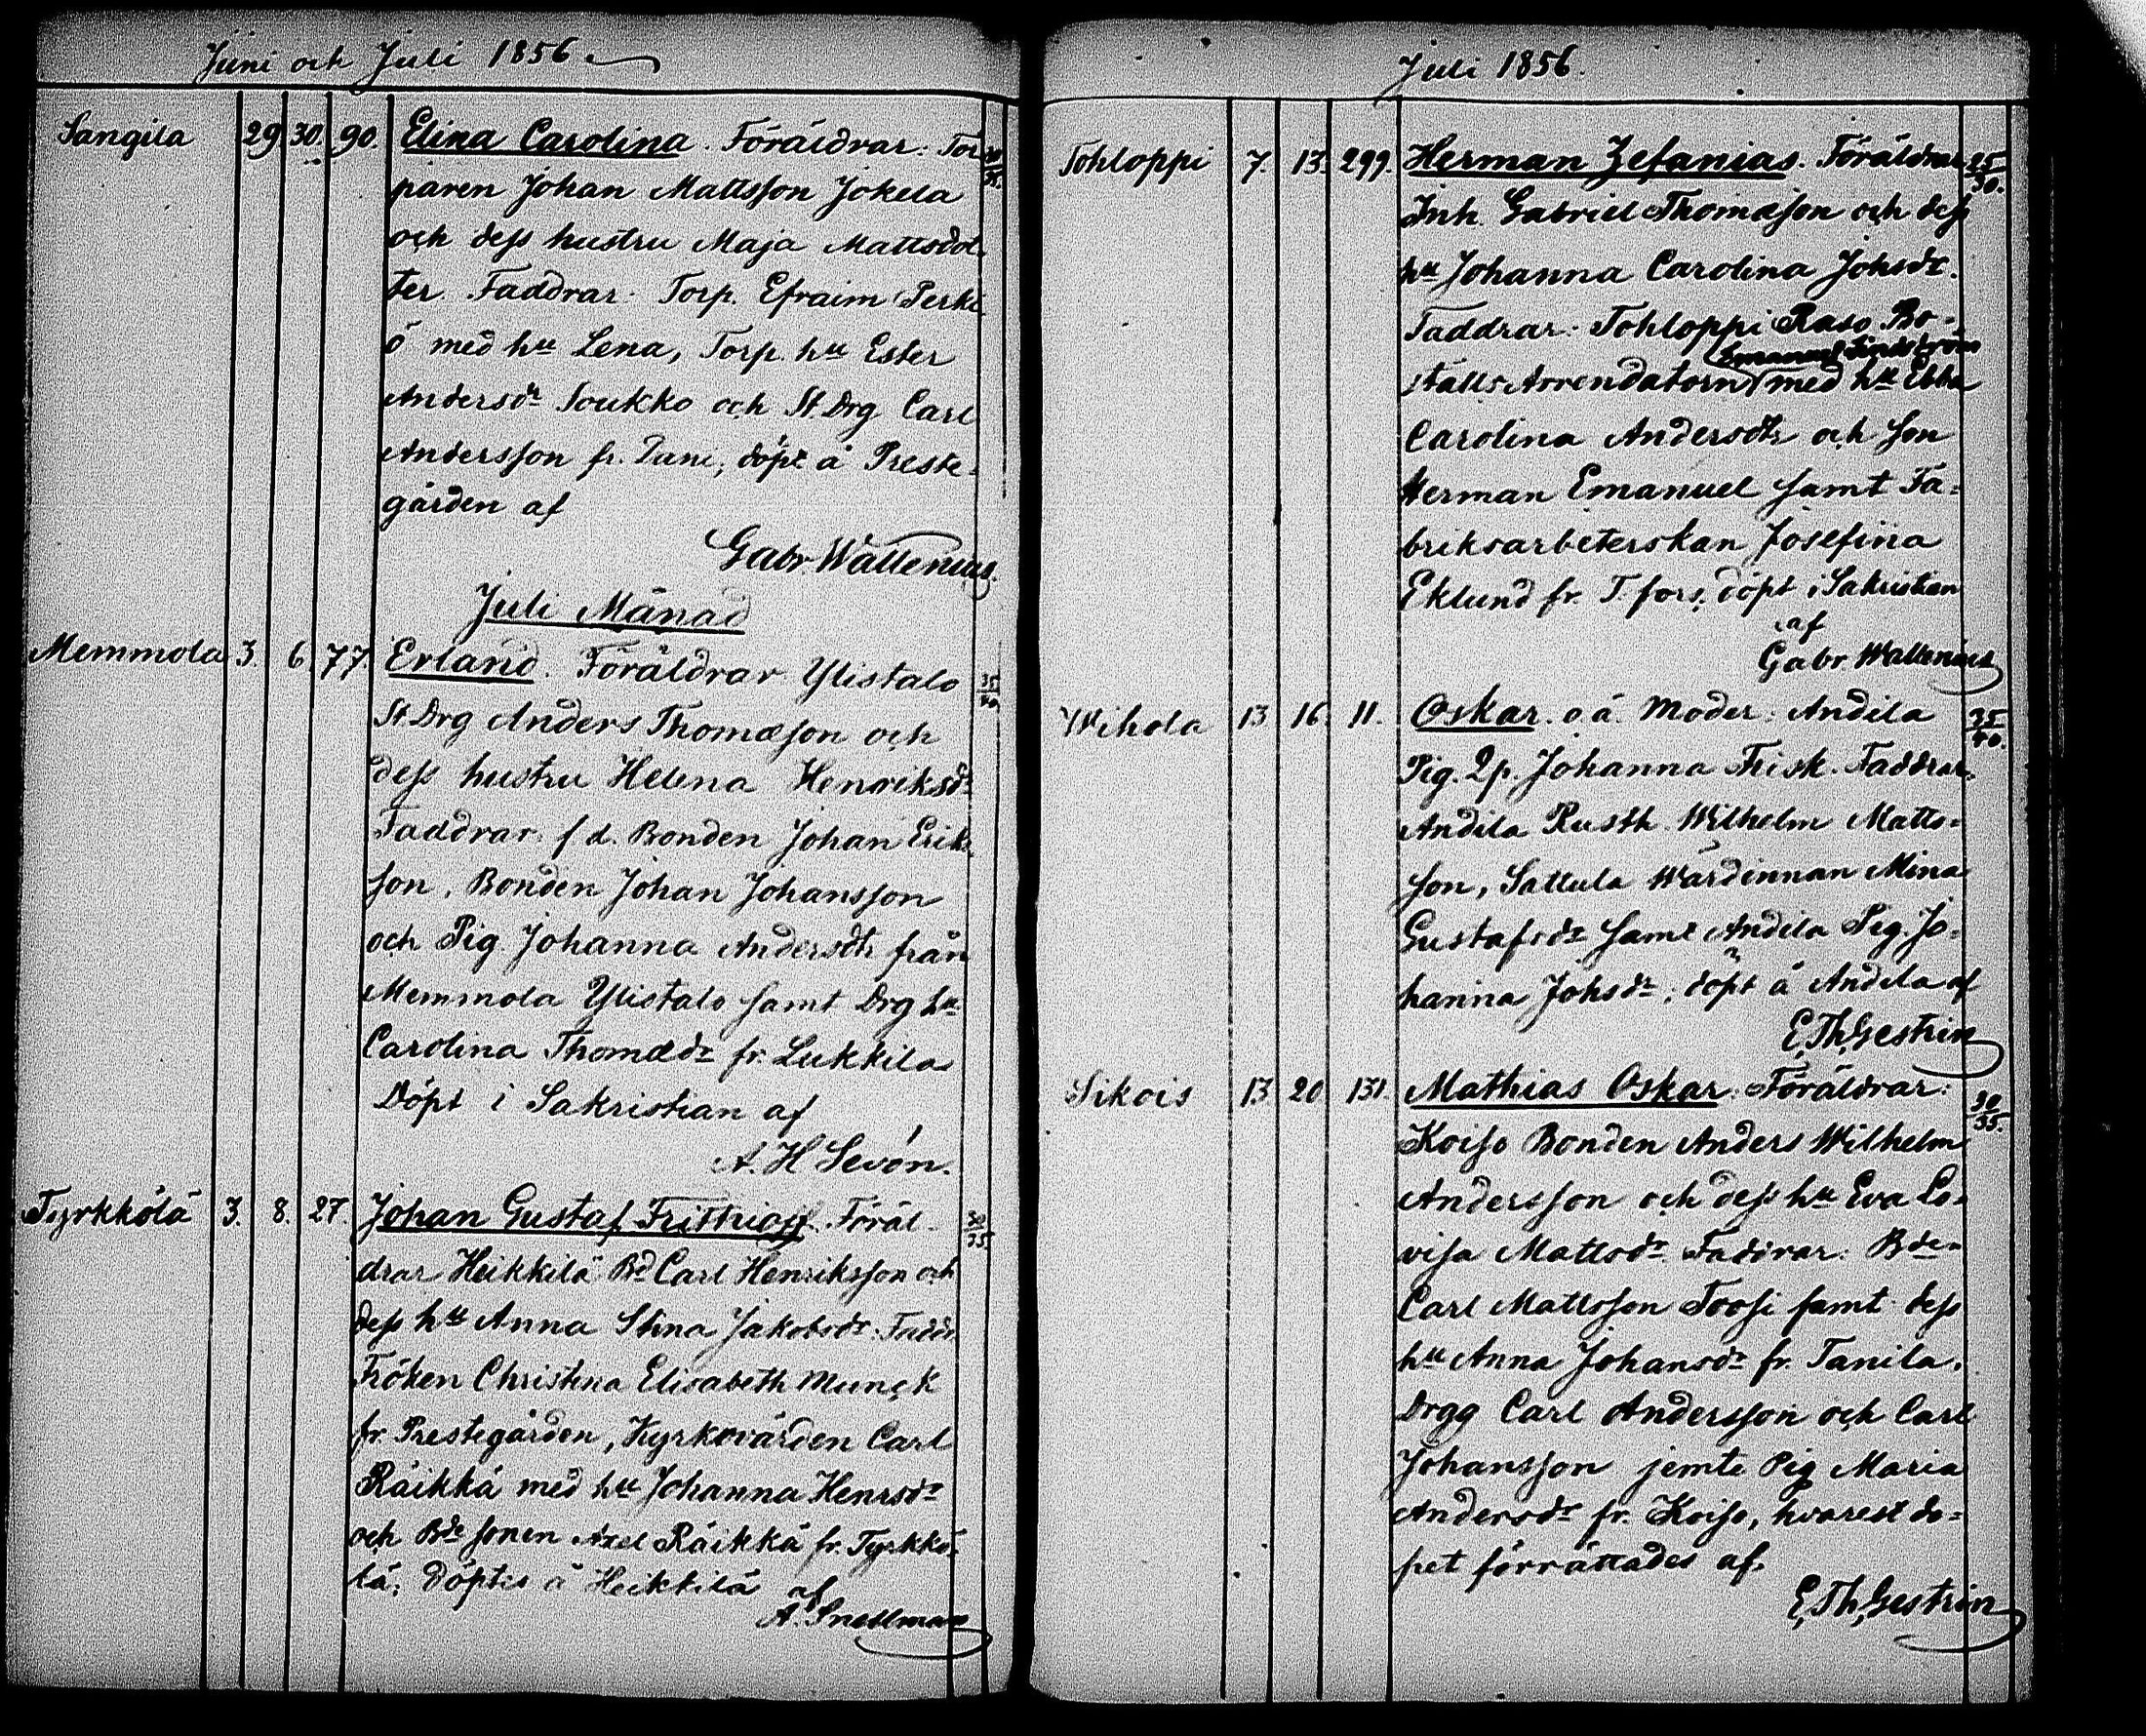 Juni och Juli 1856
Sangila 29 30. 90. Elina Carolina. Föräldrar: Tor
paren Johan Mattsson Jokela
och dess hustru Maja Mattsdot
ter. Faddrar: Torp. Efraim Perki
ö med hu Lena, Torp. hu Ester
Andersdr Soukko och St. Drg Carl
Andersson fr. döpt å Preste-
gården af
Gabr. Wallenius.
Juli Månad
Memmola 3. 6. 77. Erland. Föräldrar Ylistalo 35/40
St Drg Anders Thomæson och
dess hustru Helena Henriksdr
Faddrar: f. d. Bonden Johan Eriks
son, Bonden Johan Johansson
och Pig. Johanna Andersdtr från
Memmola Ylistalo samt Drg hu
Carolina Thomædr fr. Lukkila
Döpt i Sakristian af
A. H Sevón.
Tyrkkölä 3. 8. 27. Johan Gustaf Frithiof. Föräl- 30/35.
drar Heikkilä Bd Carl Henriksson och
dess hu Anna Stina Jakobsdr. Faddr.
Fröken Christina Elisabeth Munck
fr. Prestegården, Kyrkovärden Carl
Räikkä med hu Johanna Henrsdr
och Bde sonen Axel Räikkä fr. Tyrkkö-
lä; Döptes å Heikkilä af
A. Snellman
Juli 1856.
Tohloppi 7. 13. 299. Herman Zefanias. Föräldrar 25/30.
Inh. Gabriel Thomæson och dess
hu Johanna Carolina Johsdr.
Faddrar: Tohloppi Raso Bo-
Emanuel Lindström
ställs Arrendatorn med hu Ebba
Carolina Andersdtr och son
Herman Emanuel samt Fa-
briksarbeterskan Josefina
Eklund fr. T. fors; döpt i Sakristian
af
Gabr Wallenius
Wihola 13 16. 11. Oskar. o ä. Moder: Andila 35/40.
Pig. Qp. Johanna Frisk. Faddrar:
Andila Rusth. Wilhelm Matts-
son, Sallula Wärdinnan Mina
Gustafsdr samt Andila Pig. Jo-
hanna Johsdr; döpt å Andila af
E. Th. Gestrin
Sikois 13 20 131. Mathias Oskar. Föräldrar: 30/35.
Koiso Bonden Anders Wilhelm
Andersson och dess hu Eva Lo-
visa Mattsdr. Faddrar: Bden
Carl Mattsson Toosi samt dess
hu Anna Johansdr fr. Tanila.
Drgg Carl Andersson och Carl
Johansson jemte Pig Maria
Andersdr fr. Koiso, hvarest do-
pet förrättades af.
E. Th. Gestrin